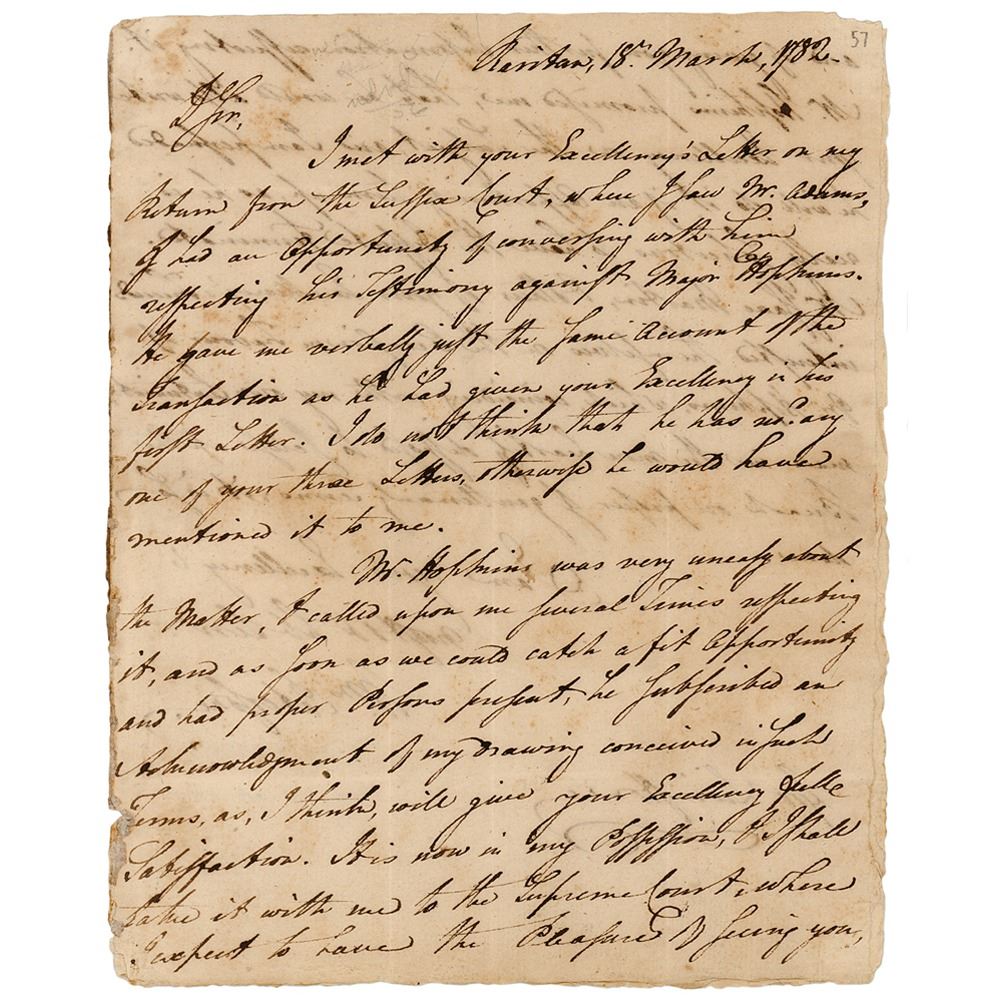 57
Raritan, 18th March, 1782.
Dr Sir,
I met with your Excellency's Letter on my
Return from the Sussex Court, where I saw Mr. Adams,
& had an Opportunity of conversing with him
respecting his Testimony against Major Hopkins.
He gave me verbally just the same Account of the
Transaction as he had given your Excellency in his
first Letter. I do not think that he has recd. any
one of your three Letters, otherwise he would have
mentioned it to me.
Mr. Hopkins was very uneasy about
the Matter, & called upon me several Times respecting
it, and as soon as we could catch a fit Opportunity
and had proper Persons present, he subscribed an
Acknowledgment of my drawing conceived in such
Terms, as, I think, will give your Excellency full
Satisfaction. It is now in my Possession, & I shall
take it with me to the Supreme Court, where
I expect to have the Pleasure of seeing you,